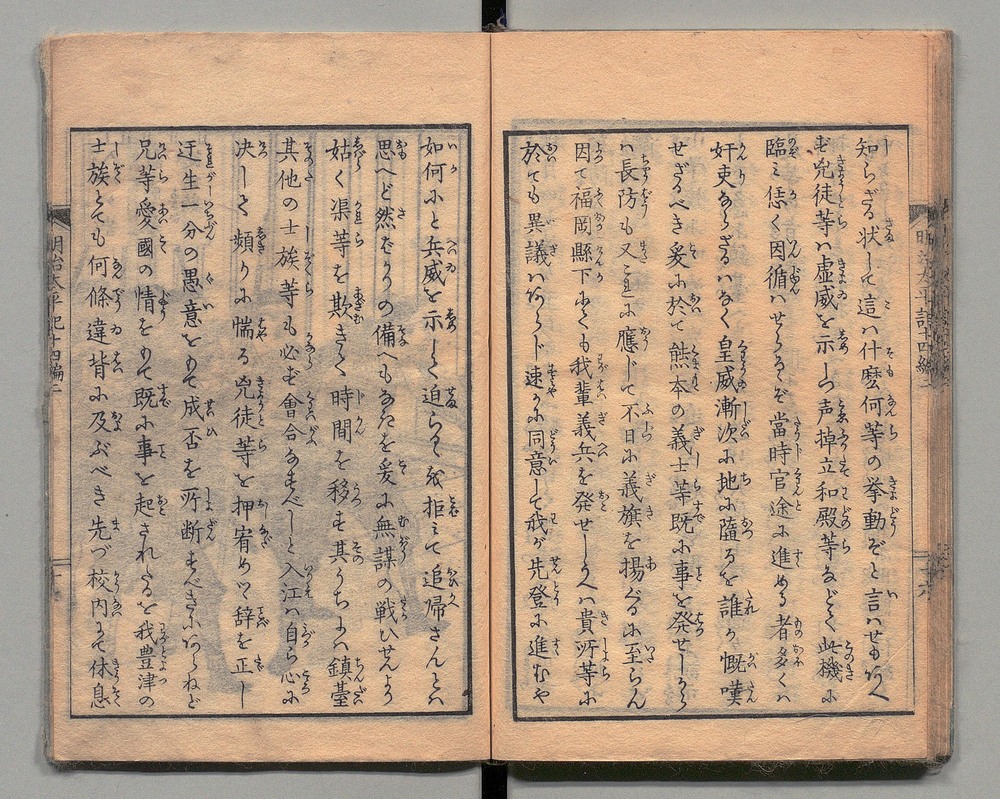 知らざる状して這ハ什麼何等の挙動ぞと言ハせもあへ
ず兇徒等ハ虚威を示しつ声掉立和殿等なぞく此機に
臨ミ恁く因循ハせらるゝぞ當時官途に進める者多くハ
奸吏ならざるハなく皇威漸次に地に墮るを誰か慨嘆
せざるべき爰に於て熊本の義士等既に事を発せしから
ハ長防も又これに應じて不日に義旗を揚ぐるに至らん
因て福岡縣下にても我輩義兵を発せしうへハ貴所等に
於ても異議ハあらじ速かに同意して我が先登に進むや
如何にと兵威を示して迫らるゝを拒ミて追帰さんとハ
思へど然ばかりの備へもあらたを爰に無謀の戦ひせんより
姑く渠等を欺きて時間を移さば其うちにハ鎮臺
其他の士族等も必ず會合なすべしと入江ハ自ら心に
决して頻りに惴る兇徒等を押宥めつゝ辞を正し
迂生一分の愚意をもて成否を所断すべきにあらねど
兄等愛國の情をもて既に事を起されたるを我豊津の
士族とても何條違背に及ぶべき先づ校内にて休息
明治太平記十四編二